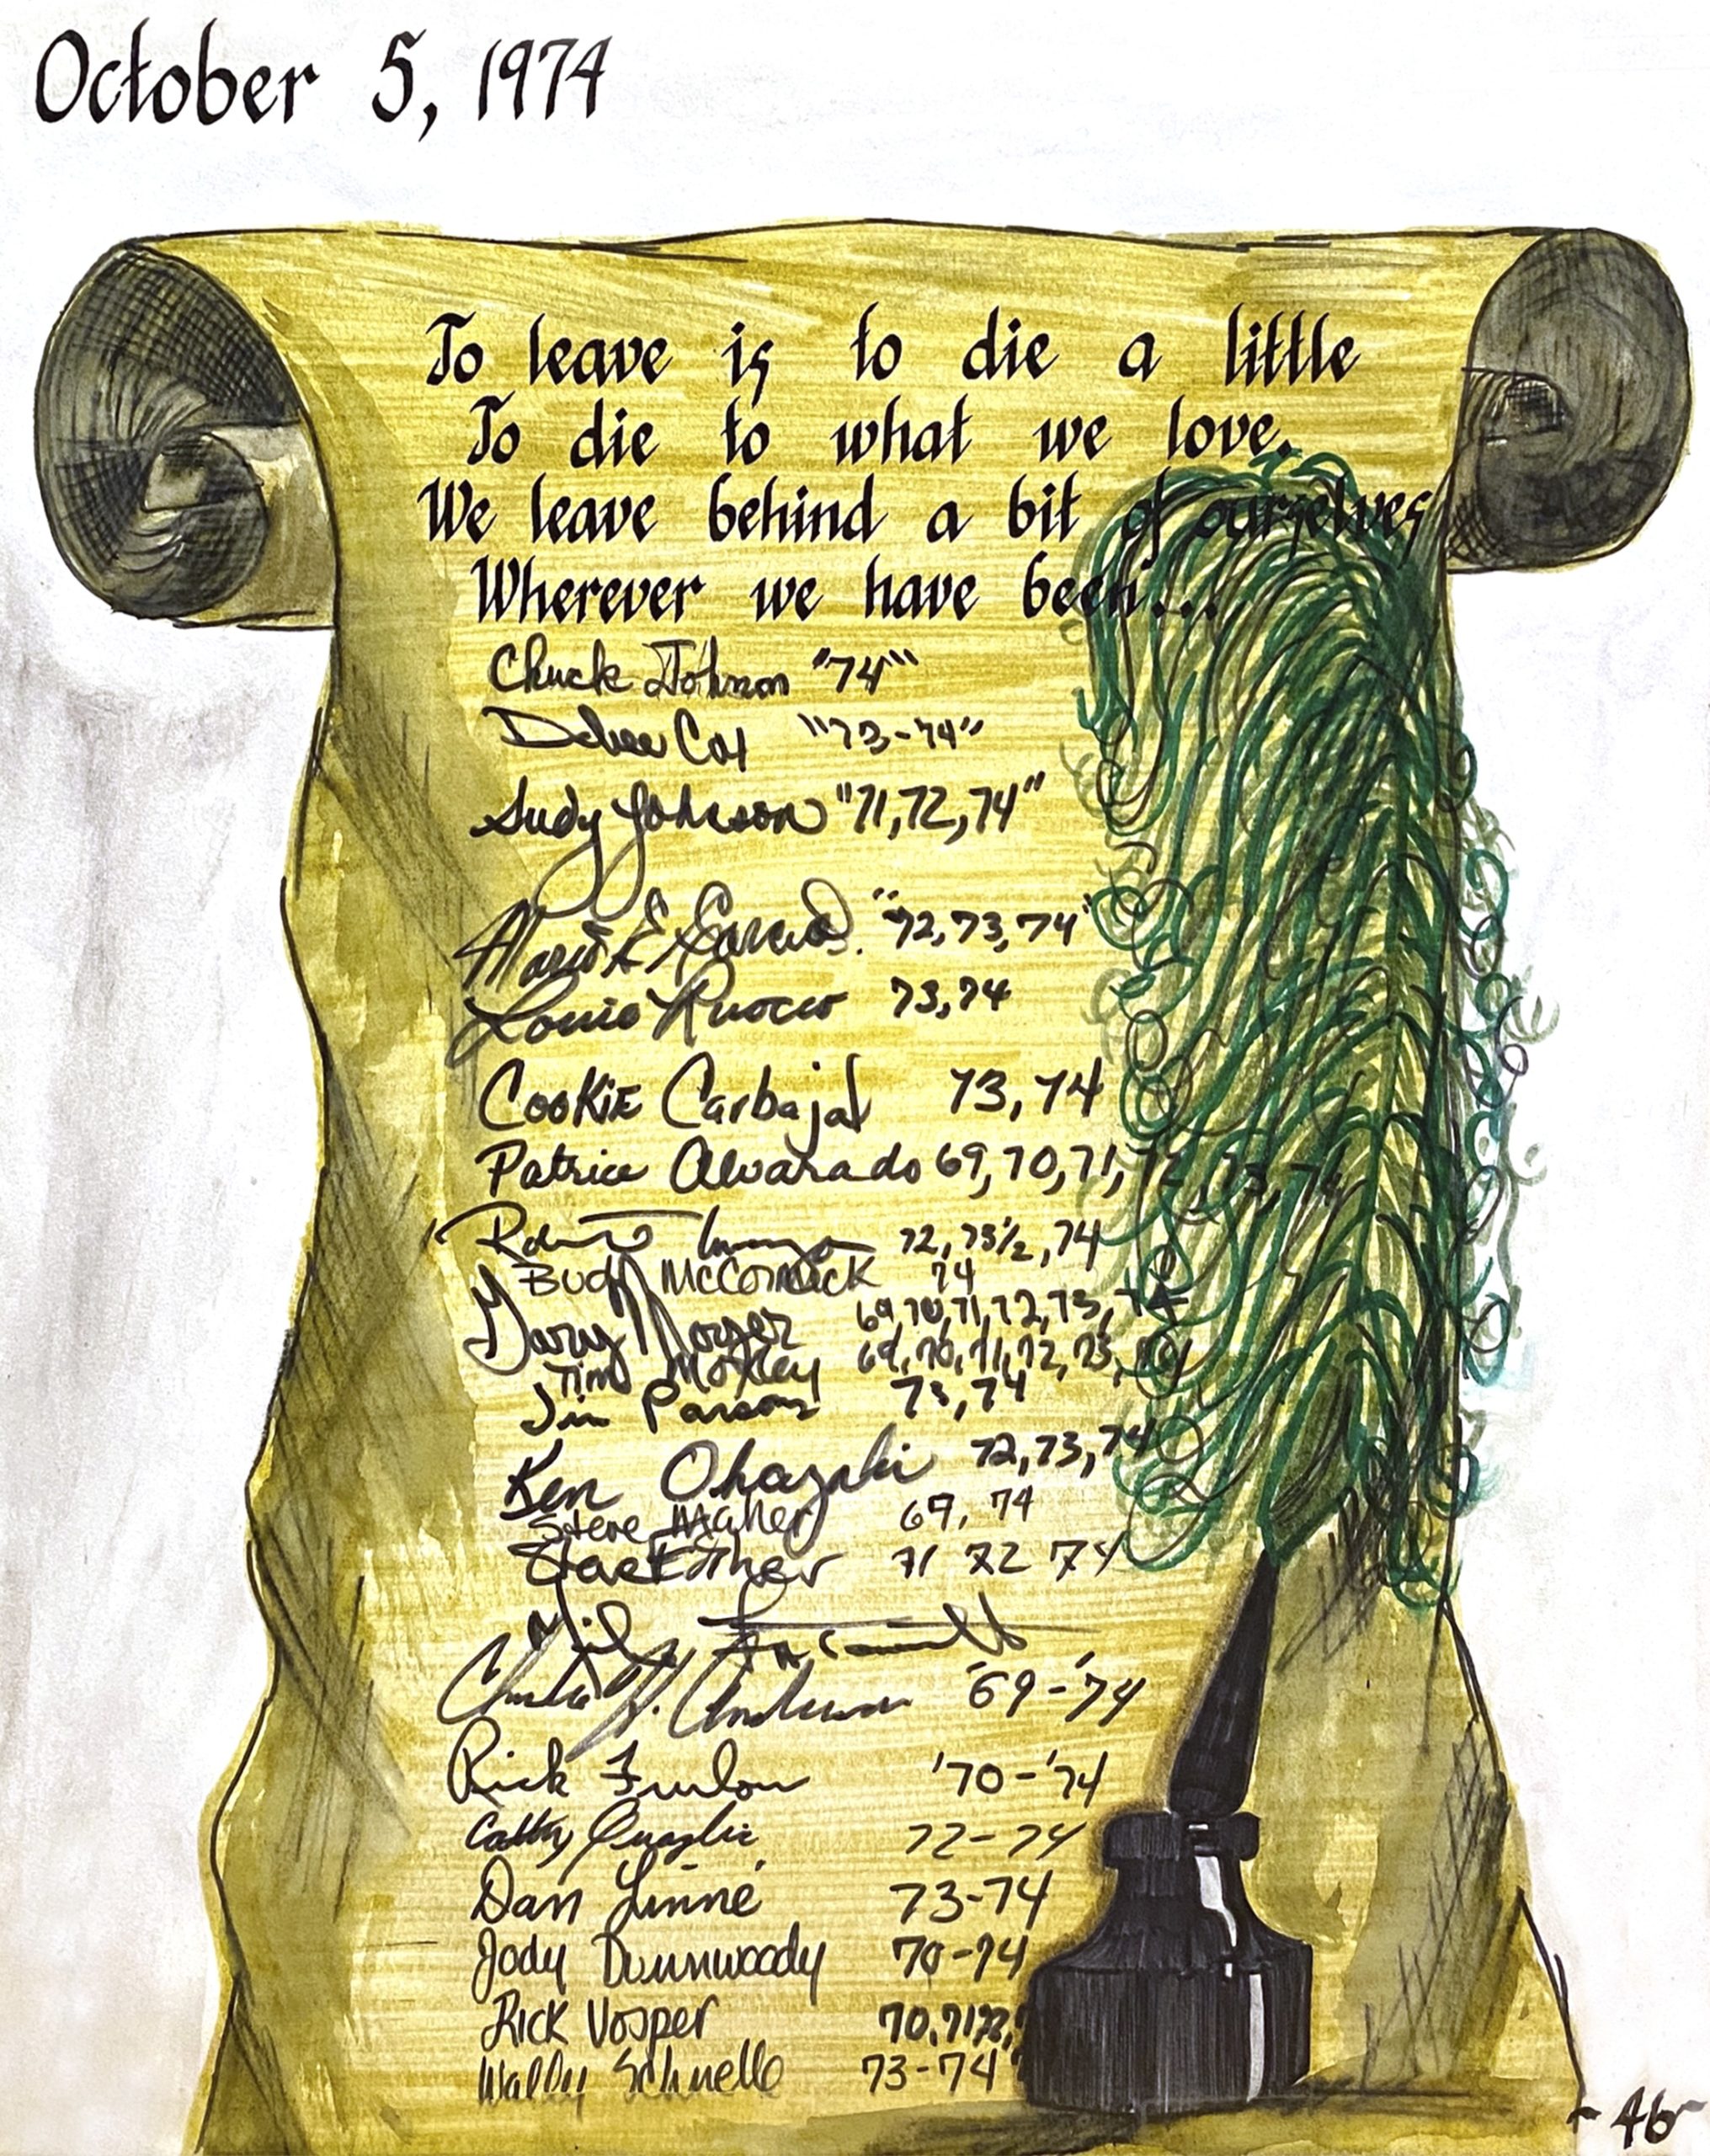 October 5, 1974
To leave is to die a little
To die to what we love.
We leave behind a bit of ourselves
Wherever we have been...
Chuck Johnson "74"
Debee Cox "73-74"
Judy Johnson "71,72,74"
Mario E. Garcia. "72,73,74"
Louie Ruocco 73,74
Cookie Carbajal 73,74
Patrice Alvarado 69,70,71,72,73,74
72,73½,74
Bud McCormick 74
Gary Moyer 69,70,71,72,73,74
Tim Moxley 69,70,71,72,73,74
Jim Parsons 73,74
Ken Okazaki 72,73,74
Steve 69, 74
71 72 74

Charles H. Anderson '69-'74
Rick Furlow '70-'74
Cathy Quaglie 72-74
Dan Linné 73-74
Jody Dunnwoody 70-74
Rick Vosper 70,71,72,
Wally Schnelle 73-74
-46-